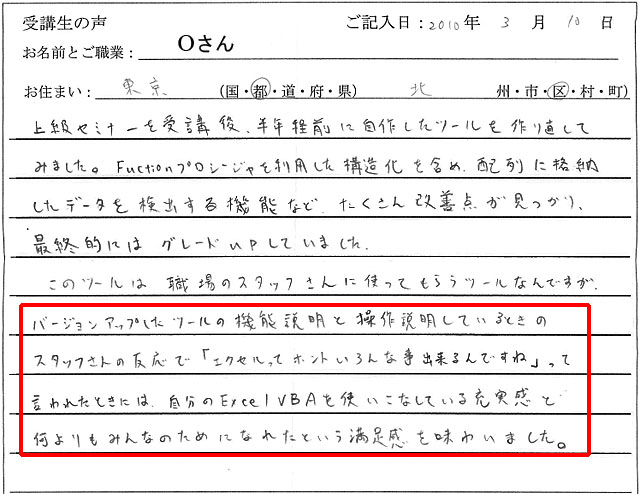 受講生の声 ご記入日：2010年 3 月 10 日
お名前とご職業： Oさん
お住まい： 東京 （国・都・道・府・県） 北 州・市・区・村・町）
上級セミナーを受講後、半年程前に自作したツールを作り直して
みました。Fuctionプロシージャを利用した構造化を含め、配列に格納
したデータを検出する機能など、たくさん改善点が見つかり、
最終的にはグレードupしていました。
このツールは職場のスタッフさんに使ってもらうツールなんですが、
バージョンアップしたツールの機能説明と操作説明しているときの
スタッフさんの反応で「エクセルってホントいろんな事出来るんですね」って
言われたときには、自分のExcelVBAを使いこなしている充実感と
何よりもみんなのためになれたという満足感を味わいました。